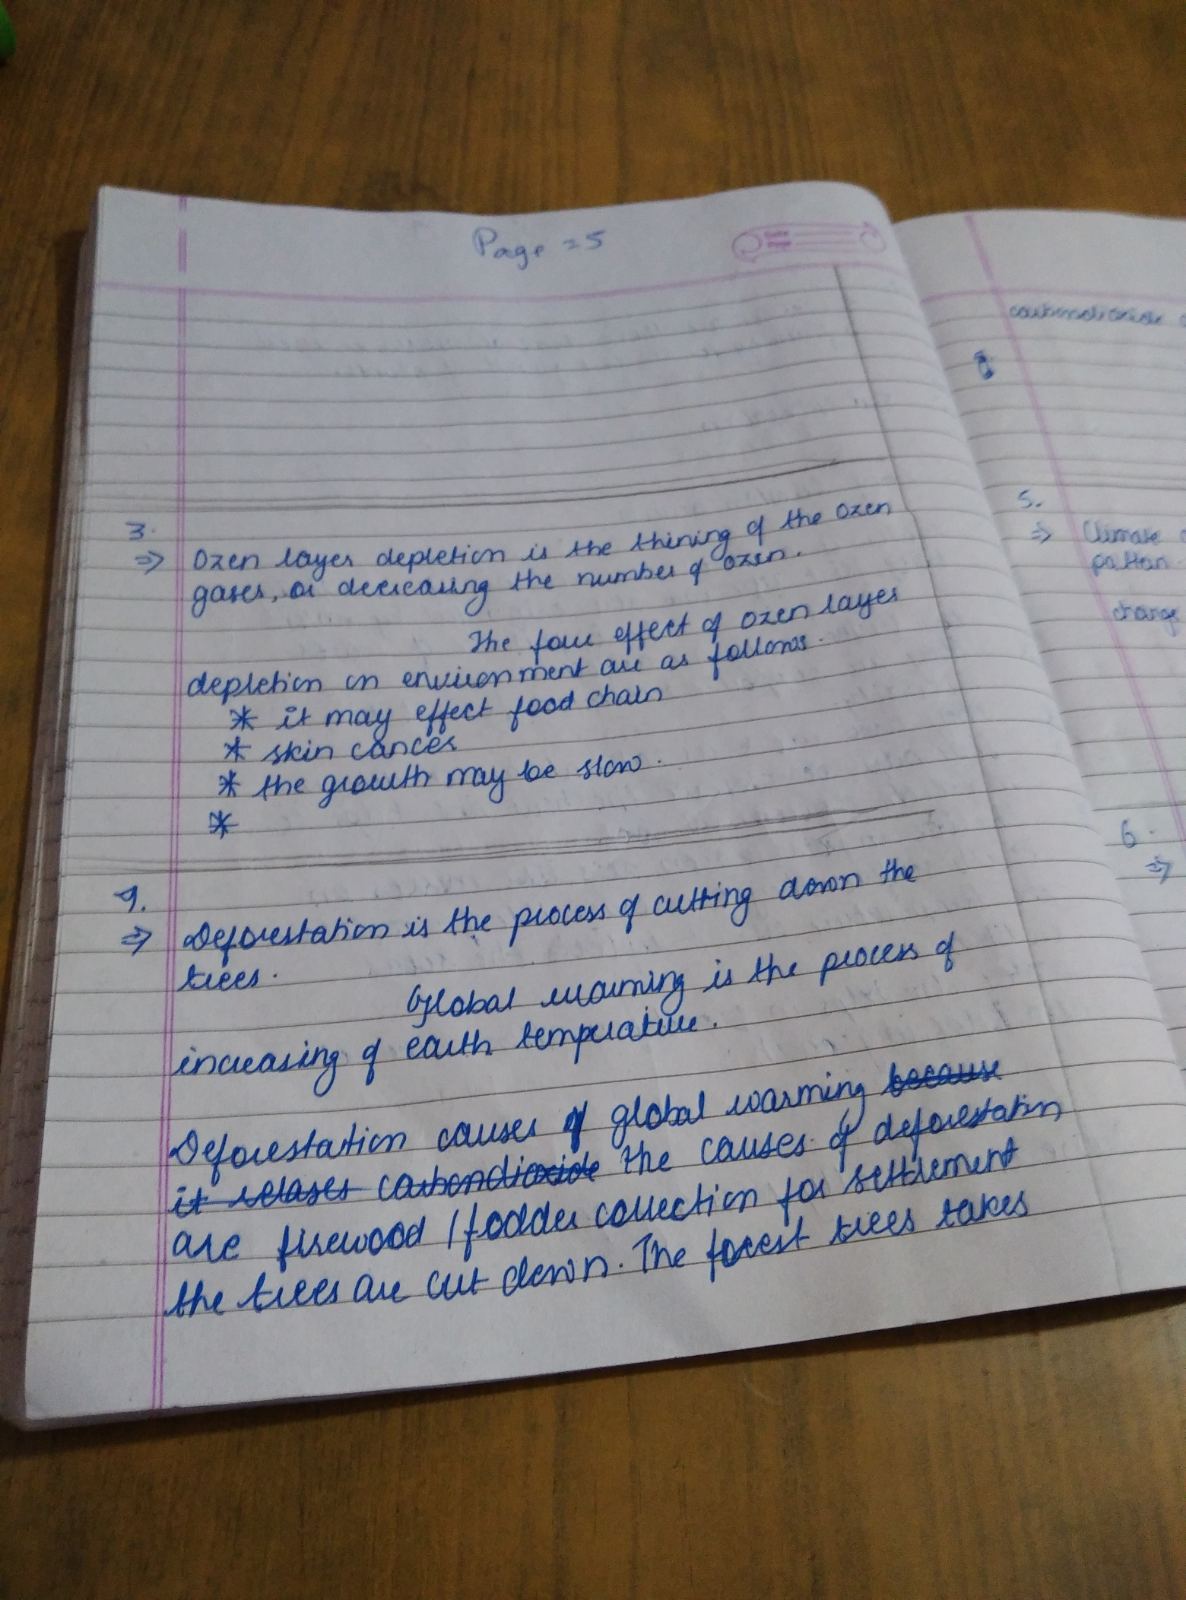 Page = 5
3.
⇒ Ozen layer depletion is the thining of the ozen
gases, or decreasing the number of ozen.
The four effect of ozen layer
depletion in environment are as follows.
* it may effect food chain
* skin cancer
* the growth may be slow.
*
9.
⇒ Deforestation is the process of cutting down the
trees.
Global warming is the process of
increasing of earth temperature.
Deforestation causes of global warming because
it relases carbondioxide the causes of deforestation
are firewood / fodder collection for settlement
the trees are cut down. The forest trees takes
carbondioxide
5.
⇒ Climate
pattan
change
6.
⇒